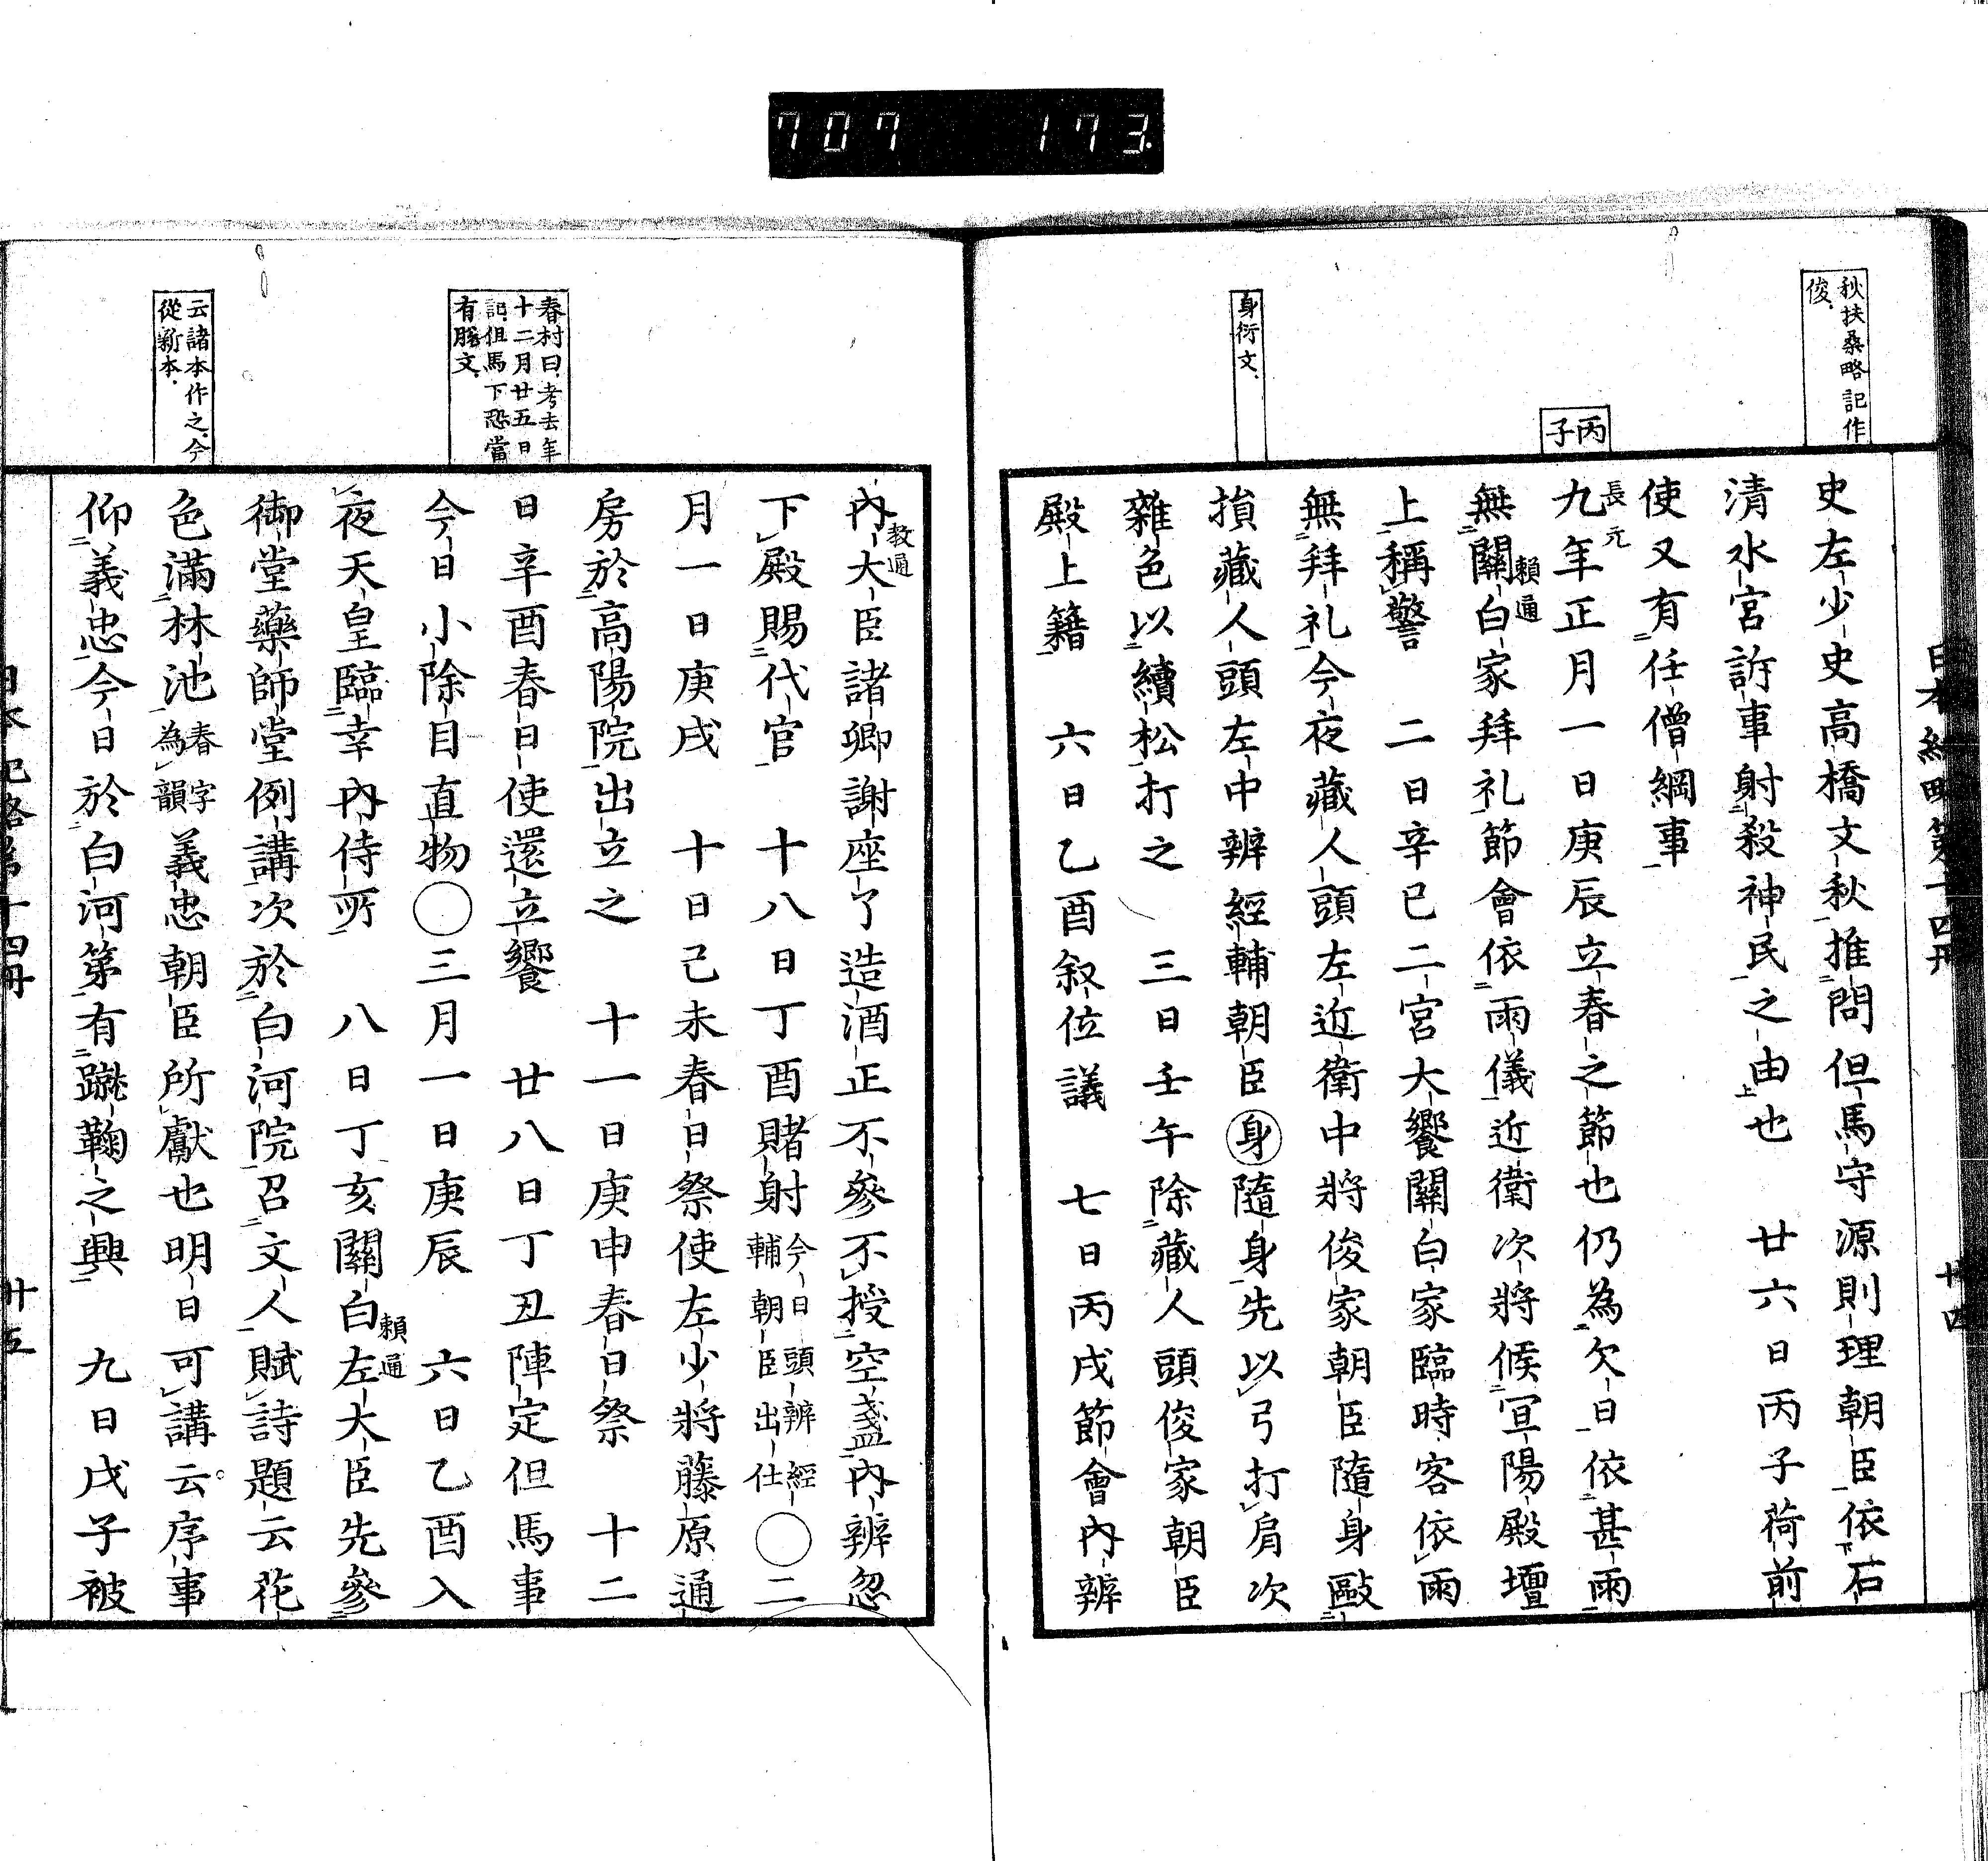 707 173
秋扶桑略記作
俊、
丙子
身衍文、
史左少史高橋文秋推問但馬守源則理朝臣依石
清水宮訴事射殺神民之由也　廿六日丙子荷前
使又有任僧綱事
長元
九年正月一日庚辰立春之節也仍為欠日依甚雨
無關白家拜礼節會依雨儀近衛次將候宣陽殿壇
頼通
上稱警　二日辛巳二宮大饗關白家臨時客依雨
無拜礼今夜藏人頭左近衛中將俊家朝臣隨身毆
損藏人頭左中辨經輔朝臣身隨身先以弓打肩次
雜色以續松打之　三日壬午除藏人頭俊家朝臣
殿上籍　六日乙酉叙位議　七日丙戌節會內辨
春村曰、考去年
十二月廿五日
記、但馬下恐當
有勝文、
云諸本作之、今
從新本、
內大臣諸卿謝座了造酒正不參不授空盞內辨忽
教通
下殿賜代官　十八日丁酉賭射今日頭辨經輔朝臣出仕〇二
月一日庚戌　十日己未春日祭使左少將藤原通
房於高陽院出立之　十一日庚申春日祭　十二
日辛酉春日使還立饗　廿八日丁丑陣定但馬事
今日小除目直物〇三月一日庚辰　六日乙酉入
夜天皇臨幸內侍所　八日丁亥關白左大臣先參
頼通
御堂藥師堂例講次於白河院召文人賦詩題云花
色滿林池春字為韻義忠朝臣所獻也明日可講云序事
仰義忠今日於白河第有蹴鞠之興　九日戊子被
日本紀略第十四冊　廿四
日本紀略第十四冊　廿五